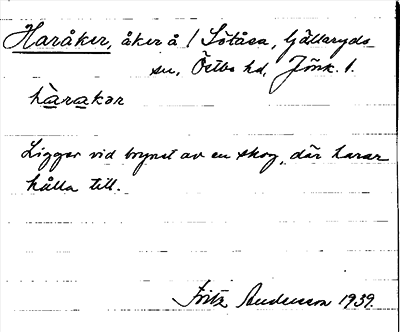 Haråker, åker å / Sötåsa, Gällaryds
sn, Östbo hd, Jönk. l.
hàrakər
Ligger vid brynet av en skog, där harar
hålla till.
Fritz Anderson 1939.